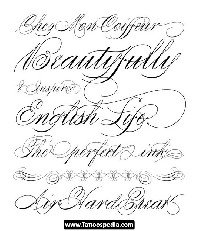 Chez Mon Coiffeur
Beautyfully
& Inspire
English Life
The perfect ink
Air Hard Break
www.Tattoospedia.com